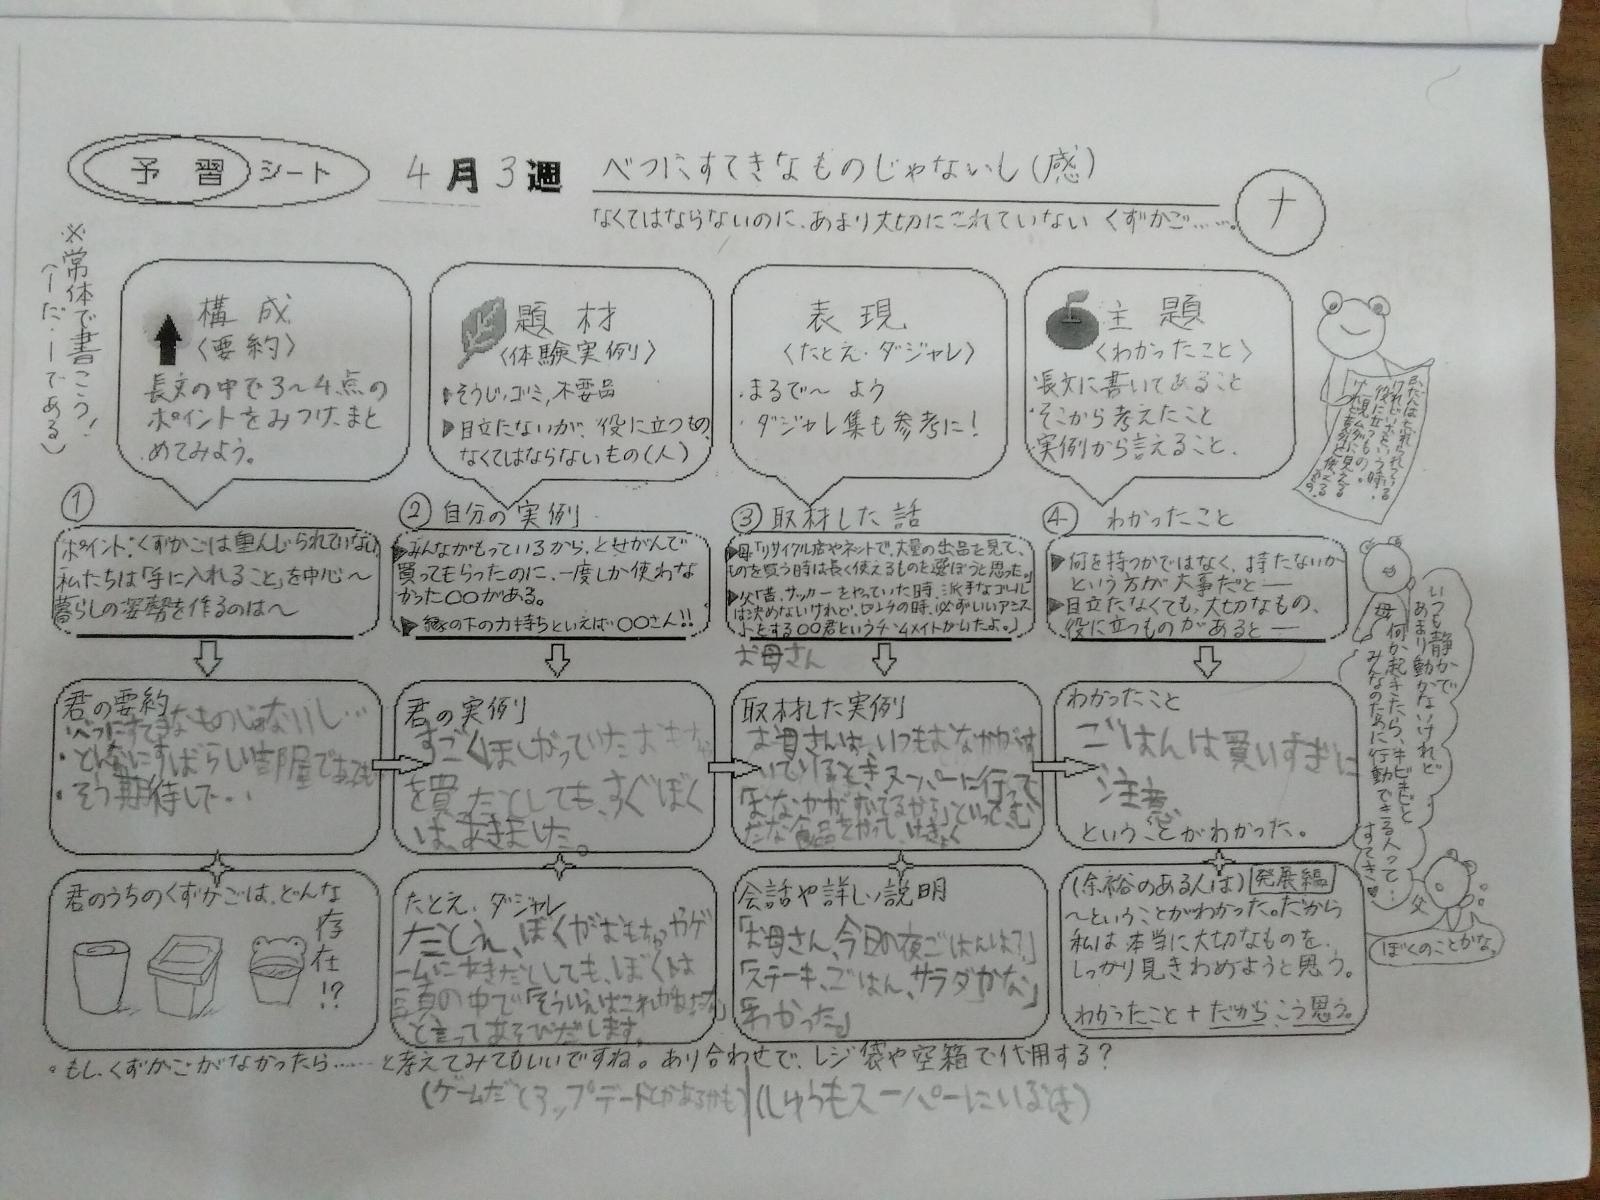 予習シート
4月3週
べつにすてきなものじゃないし(感)
なくてはならないのに、あまり大切にされていない くずかご……。
ナ
※常体で書こう!
(ーだ・ーである)
構成
〈要約〉
長文の中で3～4点の
ポイントをみつけ、まと
めてみよう。
題材
〈体験実例〉
そうじ、ゴミ、不要品
目立たないが、役に立つもの、
なくてはならないもの(人)
表現
〈たとえ・ダジャレ〉
・まるで～よう
・ダジャレ集も参考に!
主題
〈わかったこと〉
・長文に書いてあること
・そこから考えたこと
・実例から言えること
①
ポイント:くずかごは重んじられていない
私たちは「手に入れること」を中心～
暮らしの姿勢を作るのは～
② 自分の実例
みんながもっているから、とせがんで
買ってもらったのに、一度しか使わな
かった〇〇がある。
縁の下の力持ちといえば〇〇さん!!
③ 取材した話
母「リサイクル店やネットで、大量の出品を見て、
ものを買う時は長く使えるものを選ぼうと思った。」
父「昔、サッカーをやっていた時、派手なゴール
は決めないけれど、ピンチの時、必ずいいアシス
トをする〇〇君というチームメイトがいたよ。」
④ わかったこと
何を持つかではなく、持たないか
という方が大事だと―
目立たなくても、大切なもの、
役に立つものがあると―
お母さん
君の要約
・べつにすてきなものじゃないし…
・どんなにすばらしい部屋であっても
・そう期待して・・
君の実例
すごくほしがっていたおもちゃ
を買ったとしても、すぐぼく
は、あきました。
取材した実例
お母さんは、いつもおなかがす
いているときスーパーに行って
「おなかがすいてるから」といって、む
だな食品を
わかったこと
ごはんは買いすぎに
注意
ということがわかった。
君のうちのくずかごは、どんな
存在!?
たとえ、ダジャレ
たとえ、ぼくがおもちゃやゲ
ームにあきたとしても、ぼくは
頭の中で「そういえばこれがあったな」
と言ってあそびだします。
会話や詳しい説明
「お母さん、今日の夜ごはんは?」
「ステーキ、ごはん、サラダかな」
「わかった」
(余裕のある人は) 発展編
～ということがわかった。だから
私は本当に大切なものを、
しっかり見きわめようと思う。
わかったこと + だから こう思う。
いつも静かで
あまり動かないけれど
何か起きたら、キビキビと
みんなのために行動できる人って…
すてき♥
母
父
ぼくのことかな。
・もし、くずかごがなかったら……と考えてみてもいいですね。あり合わせで、レジ袋や空箱で代用する?
(ゲームだとアップデートとかあるかも)